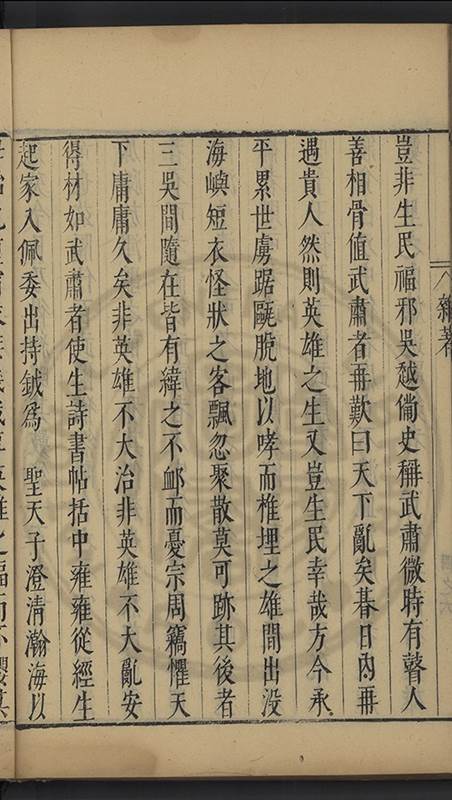 雜著
豈非生民福邪吳越備史稱武肅微時有瞽人
善相骨值武肅者再歎曰天下亂矣暮日內再
遇貴人然則英雄之生又豈生民幸哉方今承
平累世虜踞甌脫地以哮而椎埋之雄間出沒
海嶼短衣怪狀之客飄忽聚散莫可跡其後者
三吳間隨在皆有緯之不䘏而憂宗周竊懼天
下庸庸久矣非英雄不大治非英雄不大亂安
得材如武肅者使生詩書帖括中雍雍從經生
起家入佩委出持鉞爲 聖天子澄清瀚海以